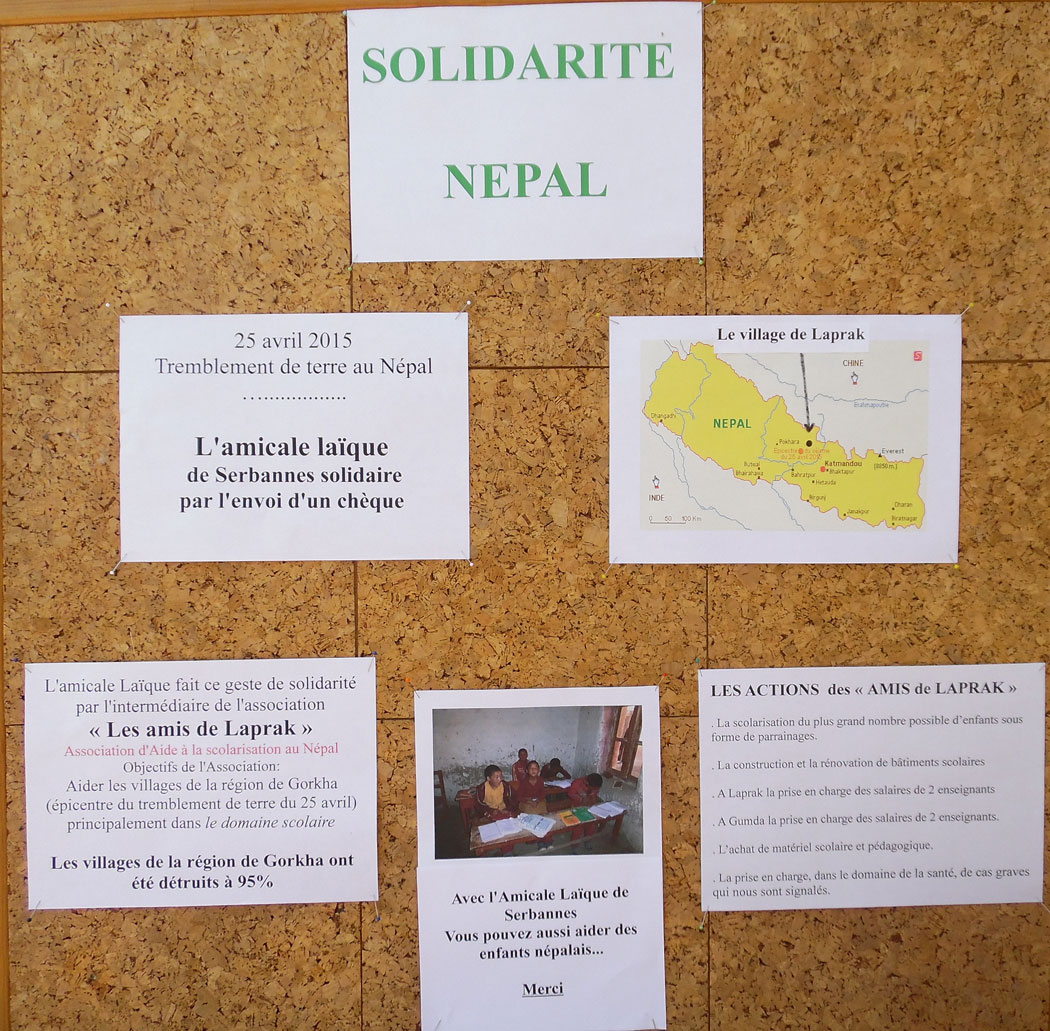 SOLIDARITE
NEPAL
25 avril 2015
Tremblement de terre au Népal
....................
L'amicale laïque
de Serbannes solidaire
par l'envoi d'un chèque
Le village de Laprak
CHINE
Brahmapoutre
Dhangadhi
NEPAL
Pokhara
Epicentre du séisme
du 25 avril 2015
Everest
(8850 m.)
Katmandou
Bhaktapur
Butwal
Bhairahawa
Bharatpur
Hetauda
INDE
Birgunj
Dharan
Janakpur
Biratnagar
0 50 100 Km
L'amicale Laïque fait ce geste de solidarité
par l'intermédiaire de l'association
« Les amis de Laprak »
Association d'Aide à la scolarisation au Népal
Objectifs de l'Association:
Aider les villages de la région de Gorkha
(épicentre du tremblement de terre du 25 avril)
principalement dans le domaine scolaire
Les villages de la région de Gorkha ont
été détruits à 95%
Avec l'Amicale Laïque de
Serbannes
Vous pouvez aussi aider des
enfants népalais...
Merci
LES ACTIONS des « AMIS de LAPRAK »
. La scolarisation du plus grand nombre possible d'enfants sous
forme de parrainages.
. La construction et la rénovation de bâtiments scolaires
. A Laprak la prise en charge des salaires de 2 enseignants
. A Gumda la prise en charge des salaires de 2 enseignants.
. L'achat de matériel scolaire et pédagogique.
. La prise en charge, dans le domaine de la santé, de cas graves
qui nous sont signalés.